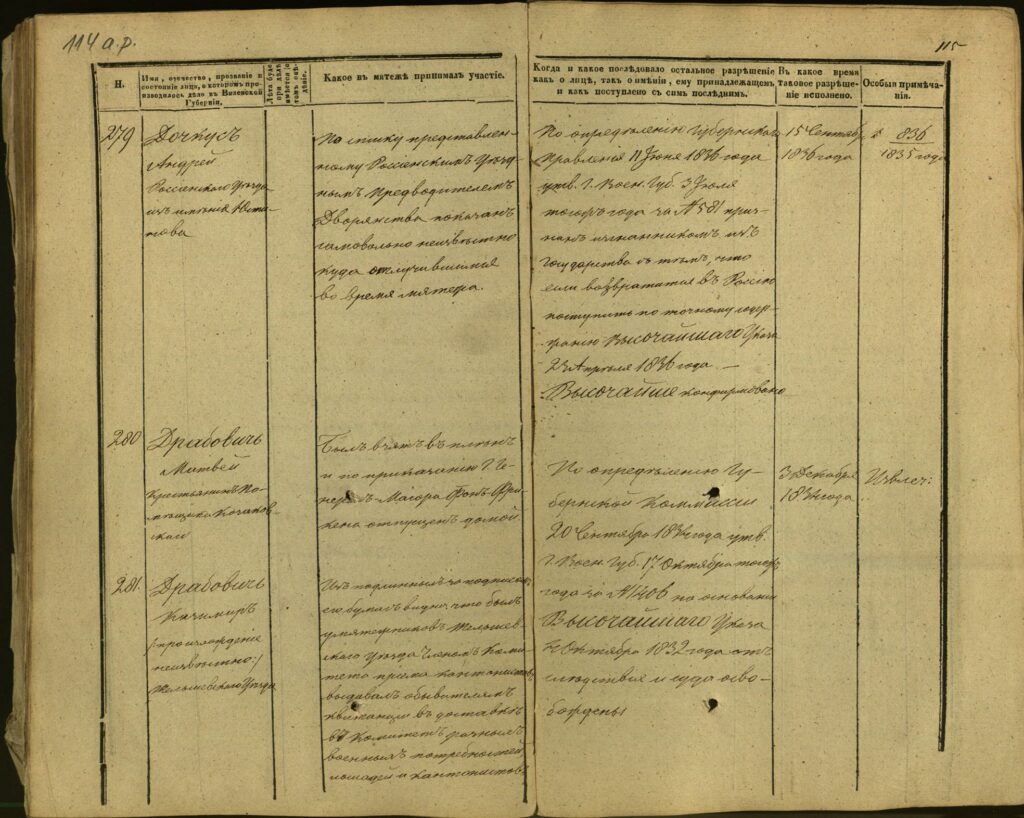 114 а.р.
115
Н.
Имя, отчество, прозвание и
состояние лица, о котором про-
изводилось дѣло въ Виленской
Губерніи.
Какое въ мятежѣ принималъ участіе.
Когда и какое послѣдовало остальное разрѣшеніе
какъ о лицѣ, такъ о имѣніи, ему принадлежащемъ
и какъ поступлено съ симъ послѣднимъ.
Въ какое время
таковое разрѣше-
ніе исполнено.
Особыя примѣча-
нія.
279
Дочкусъ
Андрей
Россіенскаго Уѣзда
изъ имѣнія
По списку представлен-
ному Россіенскимъ Уѣзд-
нымъ Предводителемъ
Дворянства показанъ
самовольно неизвѣстно
куда отлучившимся
во время мятежа.
По опредѣленію Губернскаго
Правленія 11 Іюня 1836 года
утв. Г. Воен. Губ. 3 Іюля
тогожъ года за № 581 приз-
нанъ изгнанникомъ изъ
Государства съ тѣмъ, что
если возвратится въ Россію
поступить по точному содер-
жанію Высочайшаго Указа
23 Апрѣля 1836 года. —
Высочайше конфирмовано
15 Сентяб.
1836 года
836
1835 года
280
Драбовичъ
Матвей
Крестьянинъ По-
мѣщика Козаков-
скаго
Былъ взятъ въ плѣнъ
и по приказанію Г. Ге-
нералъ-Маіора Фонъ-Фри-
кена отпущенъ домой
По опредѣленію Гу-
бернской Коммиссіи
20 Сентября утв.
Г. Воен. Губ. 17 Октября тогожъ
года за № 1406 на основаніи
Высочайшаго Указа
Октября 1832 года отъ
слѣдствія и суда осво-
бождены
3 Декабря
года
Извлеч:
281.
Драбовичъ
Казимиръ
/:происхожденіе
неизвѣстно:/
Тельшевскаго Уѣзда
Изъ подлинныхъ за подписью
его бумагъ видно, что былъ
у мятежниковъ Тельшев-
скаго уѣзда Членомъ Коми-
тета пріема кантонистовъ,
выдавалъ обывателямъ
квитанціи въ доставкѣ
въ Комитетъ разныхъ
военныхъ потребностей
лошадей и кантонистовъ